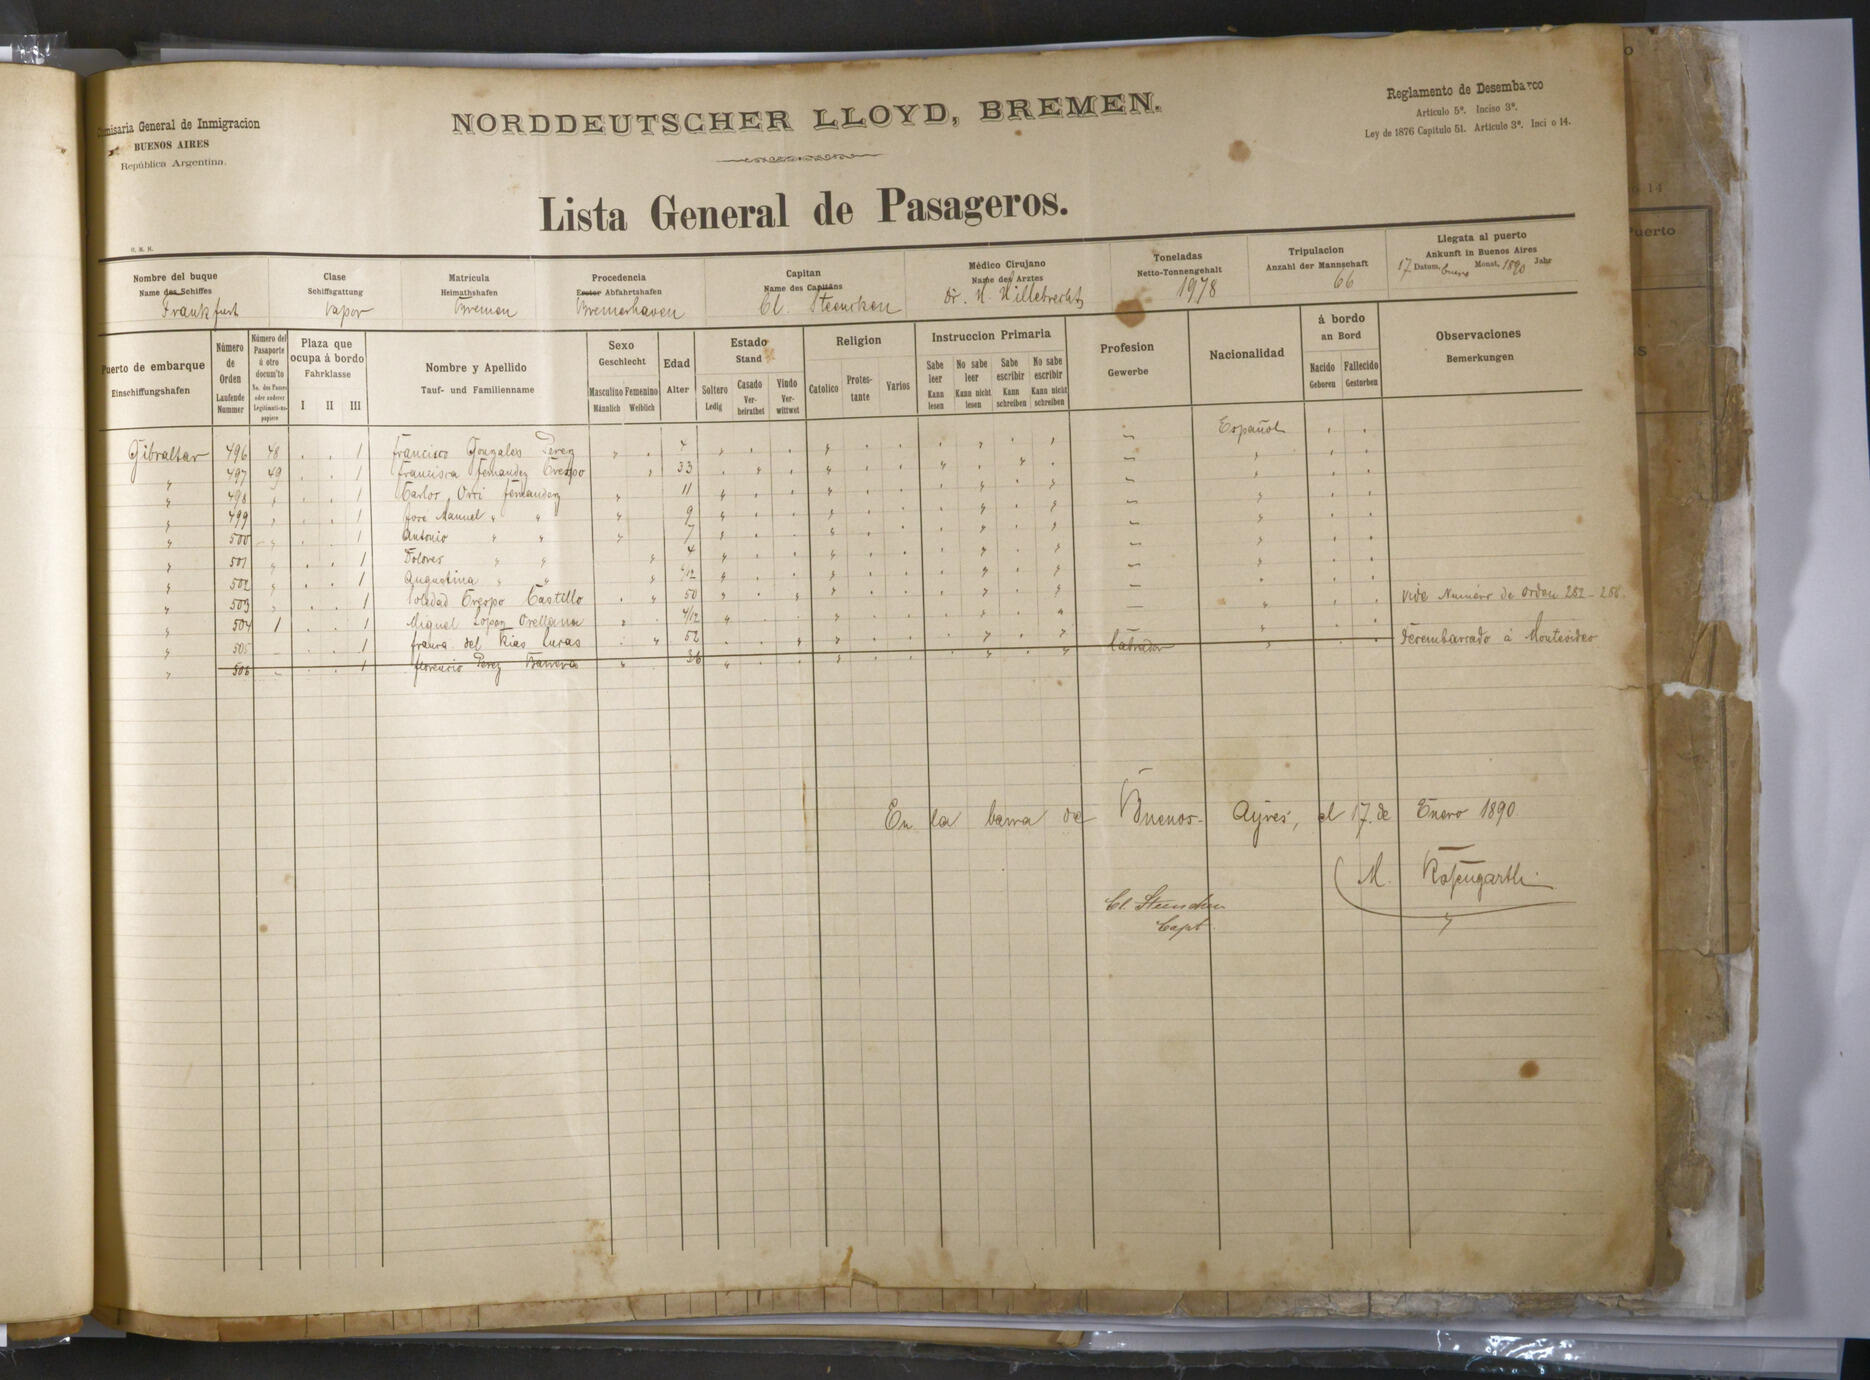 Comisaria General de Inmigracion
BUENOS AIRES
República Argentina.
NORDDEUTSCHER LLOYD, BREMEN.
Reglamento de Desembarco
Articulo 5º. Inciso 3º.
Ley de 1876 Capitulo 51. Articulo 3º. Inci o 14.
Lista General de Pasageros.
Nombre del buque
Name des Schiffes
Frankfurt
Clase
Schiffsgattung
Vapor
Matricula
Heimathshafen
Bremen
Procedencia
Abfahrtshafen
Bremerhaven
Capitan
Name des Capitäns
Cl. Steencken
Médico Cirujano
Name des Arztes
Dr. H. Hillebrecht
Toneladas
Netto-Tonnengehalt
1978
Tripulacion
Anzahl der Mannschaft
66
Llegata al puerto
Ankunft in Buenos Aires
17 Datum, Enero Monat, 1890 Jahr
Puerto de embarque
Einschiffungshafen
Número de Orden
Laufende Nummer
Número del Pasaporte ú otro docum'to
No. des Passes oder anderer Legitimations-papiere
Plaza que ocupa á bordo
Fahrklasse
I II III
Nombre y Apellido
Tauf- und Familienname
Sexo
Geschlecht
Masculino Femenino
Männlich Weiblich
Edad
Alter
Estado
Stand
Soltero
Ledig
Casado
Ver-heirathet
Viudo
Ver-wittwet
Religion
Catolico
Protes-tante
Varios
Instruccion Primaria
Sabe leer
Kann lesen
No sabe leer
Kann nicht lesen
Sabe escribir
Kann schreiben
No sabe escribir
Kann nicht schreiben
Profesion
Gewerbe
Nacionalidad
á bordo
an Bord
Nacido
Geboren
Fallecido
Gestorben
Observaciones
Bemerkungen
Gibraltar 496 48 . . 1 Francisco Gonzales Perez 4 Español
" 497 49 . . 1 Francisca Fernandez Crespo 33
" 498 " . . 1 Carlos Orri Fernandez 11
" 499 " . . 1 José Manuel " " 9
" 500 " . . 1 Antonio " " 7
" 501 " . . 1 Dolores " " 4
" 502 " . . 1 Augustina " "
" 503 " . . 1 Soledad Crespo Castillo 50
" 504 1 . . 1 Miguel Lopez Orellana 4/12 vide Numéro de Orden 282 - 288.
" 505 - . . 1 del Rias 52
" 506 - . . 1 Florencio Perez Barrera 36 Labrador Desembarcado á Montevideo
En la barra de Buenos-Ayres, el 17. de Enero 1890.
M. Rosengarth
Cl. Steencken
Capt.